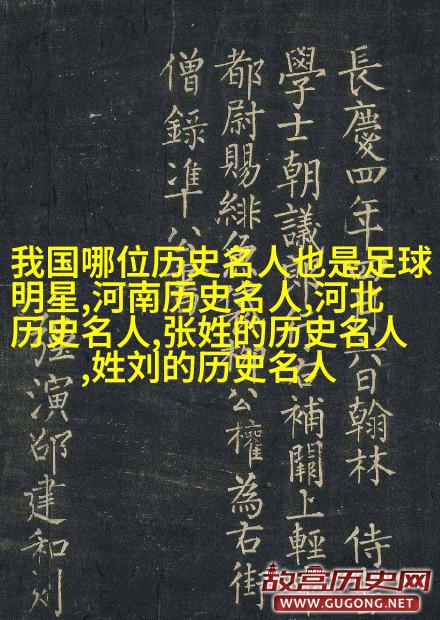 我国哪位历史名人也是足球
明星,河南历史名人,河北
历史名人,张姓的历史名人
,姓刘的历史名人
長慶四年 六日翰林 侍
學士朝議 右補闕上輕
都尉賜緋 公權為右街
僧錄准公
演邵建和刻
故宫历史网
WWW.GUGONG.NET